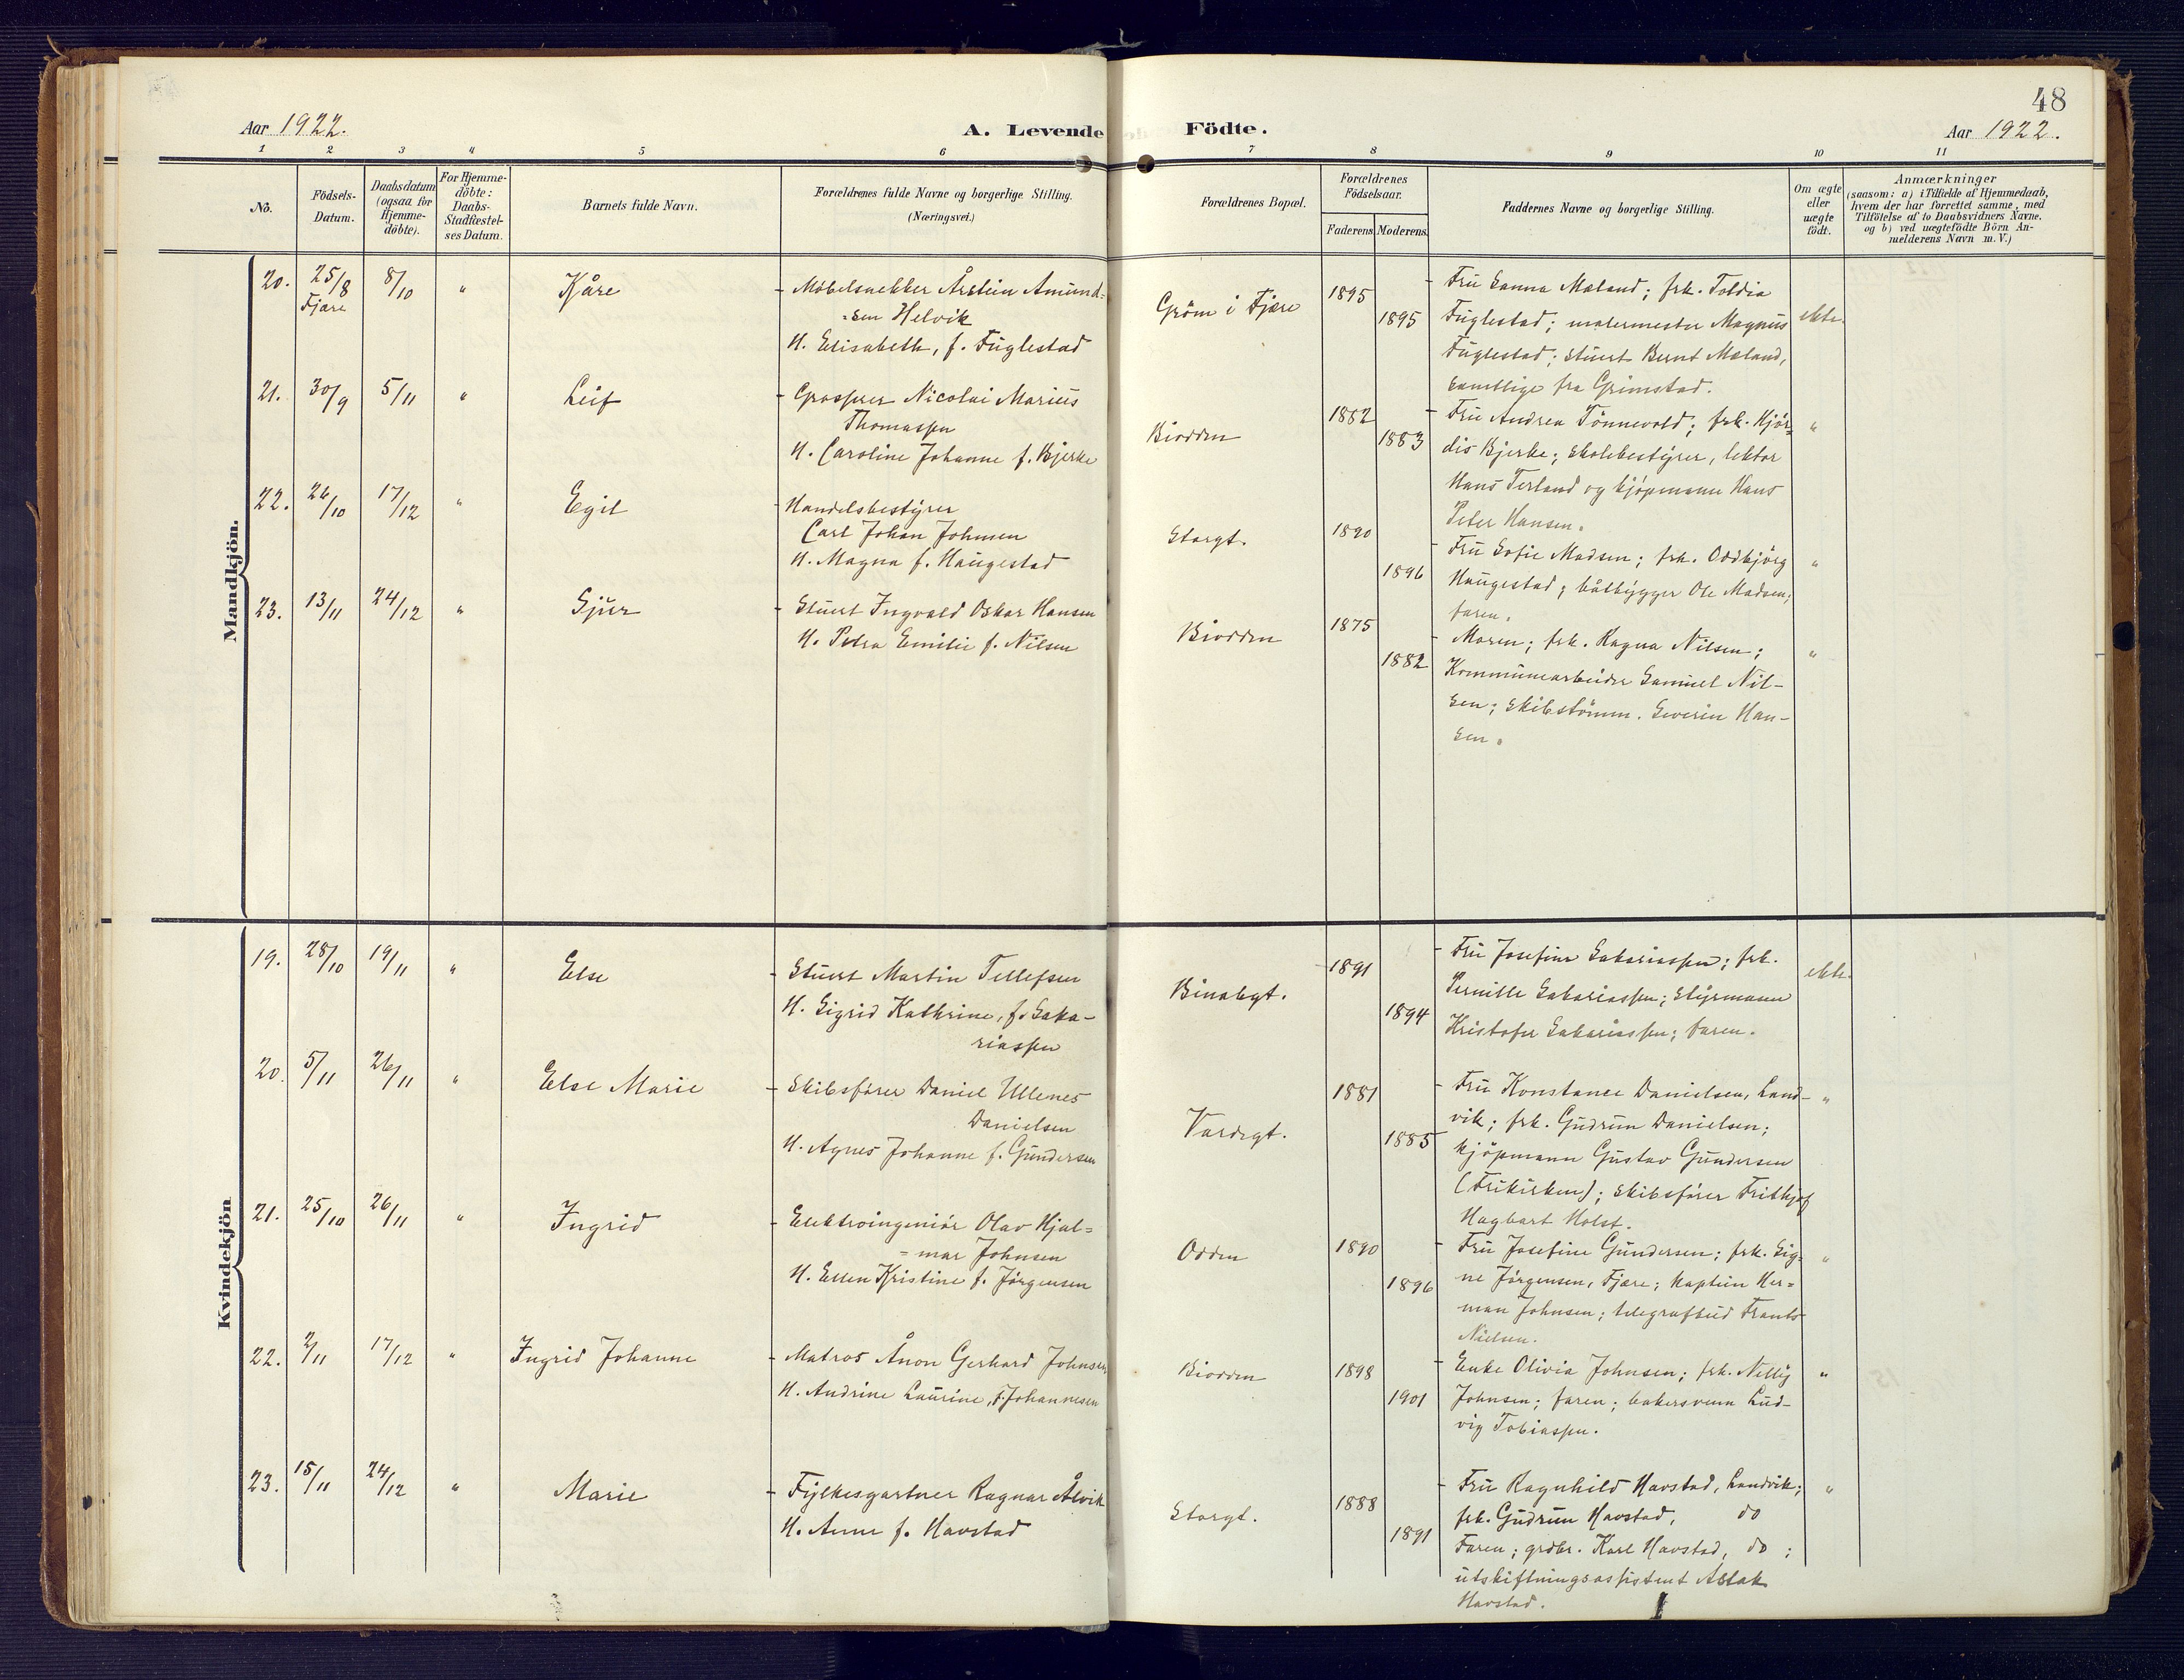 48
Aar 1922.
A. Levende Födte.
Aar 1922.
1 2 3 4 5 6 7 8 9 10 11
No.
Födsels-
Datum.
Daabsdatum
(ogsaa for
Hjemme-
döbte).
For Hjemme-
döbte:
Daabs-
Stadfæstel-
ses Datum.
Barnets fulde Navn.
Forældrenes fulde Navne og borgerlige Stilling.
(Næringsvei.)
Forældrenes Bopæl.
Forældrenes
Födselsaar.
Faderens Moderens
Faddernes Navne og borgerlige Stilling.
Om ægte
eller
uægte
födt.
Anmærkninger
(saasom: a) i Tilfælde af Hjemmedaab,
hvem der har forrettet samme, med
Tilföielse af to Daabsvidners Navne.
og b) ved uægtefödte Börn An-
melderens Navn m. V.)
Mandkjön.
20. 25/8 8/10 " Kåre
Fjære
- Möbelsnekker Årstein Amund=
=sen Helvik
H. Elisabeth, f. Fuglestad
Gröm i Fjære
1895
1895
- Fru Sanna Mæland; frk. Toldia
Fuglestad; malermester Magnus
Fuglestad; stuert Bernt Mæland,
samtlige fra Grimstad.
ekte.
21. 30/9 5/11 " Leif
- Grosserer Nicolai Marius
Thomassen
H. Caroline Johanne f. Bjerke
Biodden
1882
1883
- Fru Andrea Tönnevold; frk. Hjör=
dis Bjerke; skolebestyrer, lektor
Hans Terland og kjöpmann Hans
Peter Hansen.
"
22. 26/10 17/12 " Egil
- Handelsbestyrer
Carl Johan Johnsen
H. Magna f. Haugestad
Storgt.
1890
1896
- Fru Sofie Madsen; frk. Oddbjörg
Haugestad; båtbygger Ole Madsen;
faren.
"
23. 13/11 24/12 " Sjur
- Stuert Ingvald Oskar Hansen
H. Petra Emilie f. Nilsen
Biodden
1875
1882
- Moren; frk. Ragna Nilsen;
Kommunearbeider Samuel Nil-
sen; skibstömm. Severin Han-
sen.
"
Kvindekjön
19. 28/10 19/11 " Else
- Stuert Martin Tellefsen
H. Sigrid Kathrine, f. Saka-
riassen
Binabgt.
1891
1894
- Fru Josefine Sakariassen; frk.
Pernille Sakariassen; styrmann
Kristofer Sakariassen; faren.
ekte.
20. 5/11 26/11 " Else Marie
- Skibsförer Daniel Ullenes
Danielsen
H. Agnes Johanne f. Gundersen
Vardegt.
1881
1885
- Fru Konstance Danielsen, Land-
vik; frk. Gudrun Danielsen;
kjöpmann Gustav Gundersen
(Frikirken); skibsförer Frithjof
Hagbart Holst.
"
21. 25/10 26/11 " Ingrid
- Elektroingeniör Olav Hjal=
=mar Johnsen
H. Ellen Kristine f. Jörgensen
Odden
1890
1896
- Fru Josefine Gundersen; frk. Sig=
ne Jörgensen, Fjære; kaptein Her=
man Johnsen; telegrafbud Frants
Nielsen.
"
22. 2/11 17/12 " Ingrid Johanne
- Matros Ånon Gerhard Johnsen
H. Andrine Laurine, f. Johannesen
Biodden
1898
1901
- Enke Olivia Johnsen; frk. Nelly
Johnsen; faren; bakersvenn Lud-
vig Tobiassen.
"
23. 15/11 24/12 " Marie
- Fylkesgartner Ragnar Ålvik
H. Anne f. Havstad
Storgt.
1888
1891
- Fru Ragnhild Havstad, Landvik;
frk. Gudrun Havstad, do
Faren; grdbr. Karl Havstad, do;
utskiftningsassistent Aslak
Havstad.
"